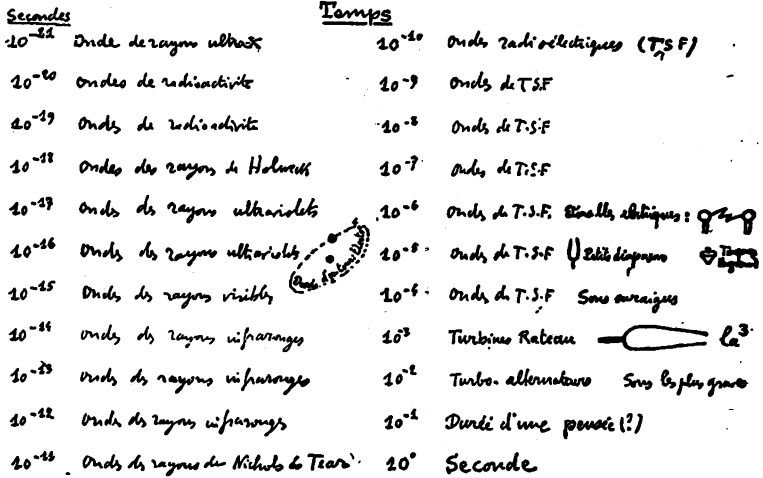 Temps
Secondes
10⁻²¹ Onde de rayons ultra X
10⁻²⁰ ondes de radioactivité
10⁻¹⁹ Ondes de radioactivité
10⁻¹⁸ Ondes des rayons de Holweck
10⁻¹⁷ onds ds rayons ultraviolets
10⁻¹⁶ Onds ds rayons ultraviolets
10⁻¹⁵ Onds ds rayons visibles
10⁻¹⁴ onds ds rayons infrarouges
10⁻¹³ onds ds rayons infrarouges
10⁻¹² onds ds rayons infrarougs
10⁻¹¹ Onds ds rayons de Nichols & Tear
10⁻¹⁰ Ondes radioélectriques (TSF)
10⁻⁹ Onds de TSF
10⁻⁸ Onds de T.S.F
10⁻⁷ Ondes de T.S.F
10⁻⁶ Onds de T.S.F. Etincelles électriques :
10⁻⁵ Onds de T.S.F Petits diapasons
10⁻⁴ Onds de T.S.F Sons suraigus
10⁻³ Turbines Rateau la³
10⁻² Turbo-alternateurs Sons les plus graves
10⁻¹ Durée d'une pensée (?)
10⁰ Seconde